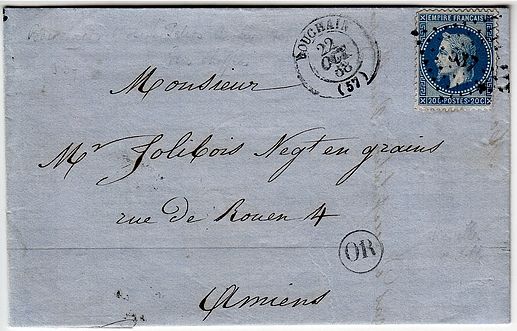 BOUCHAIN
22
OCT
68
(57)
EMPIRE FRANÇAIS
20C POSTES 20C
Monsieur
Mr Jolibois Negt en grains
rue de Rouen 4
OR
Amiens